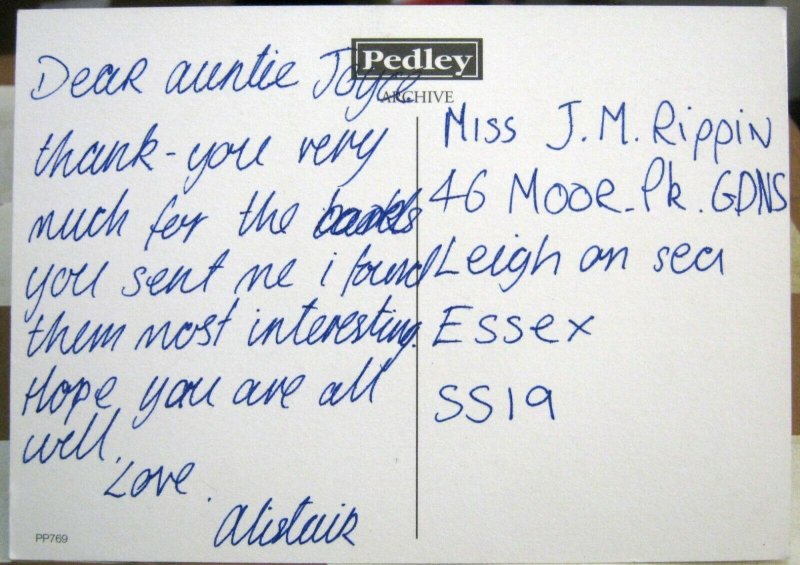 Pedley
ARCHIVE
Dear auntie Joyce
thank-you very
much for the books
you sent me i found
them most interesting.
Hope you are all
well.
Love.
Alistair
Miss J.M. Rippin
46 Moor Pk. GDNS
Leigh on sea
Essex
SS19
PP769